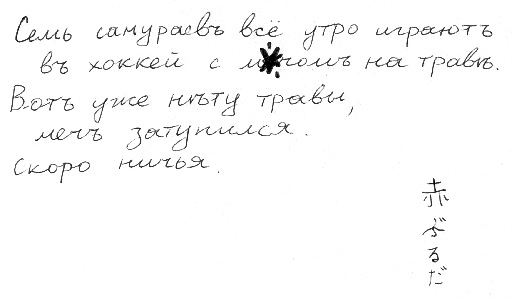 Семь самураевъ всё утро играютъ
въ хоккей с на травѣ.
Вотъ уже нѣту травы,
мечъ затупился.
Скоро ничья.
赤ぶるだ